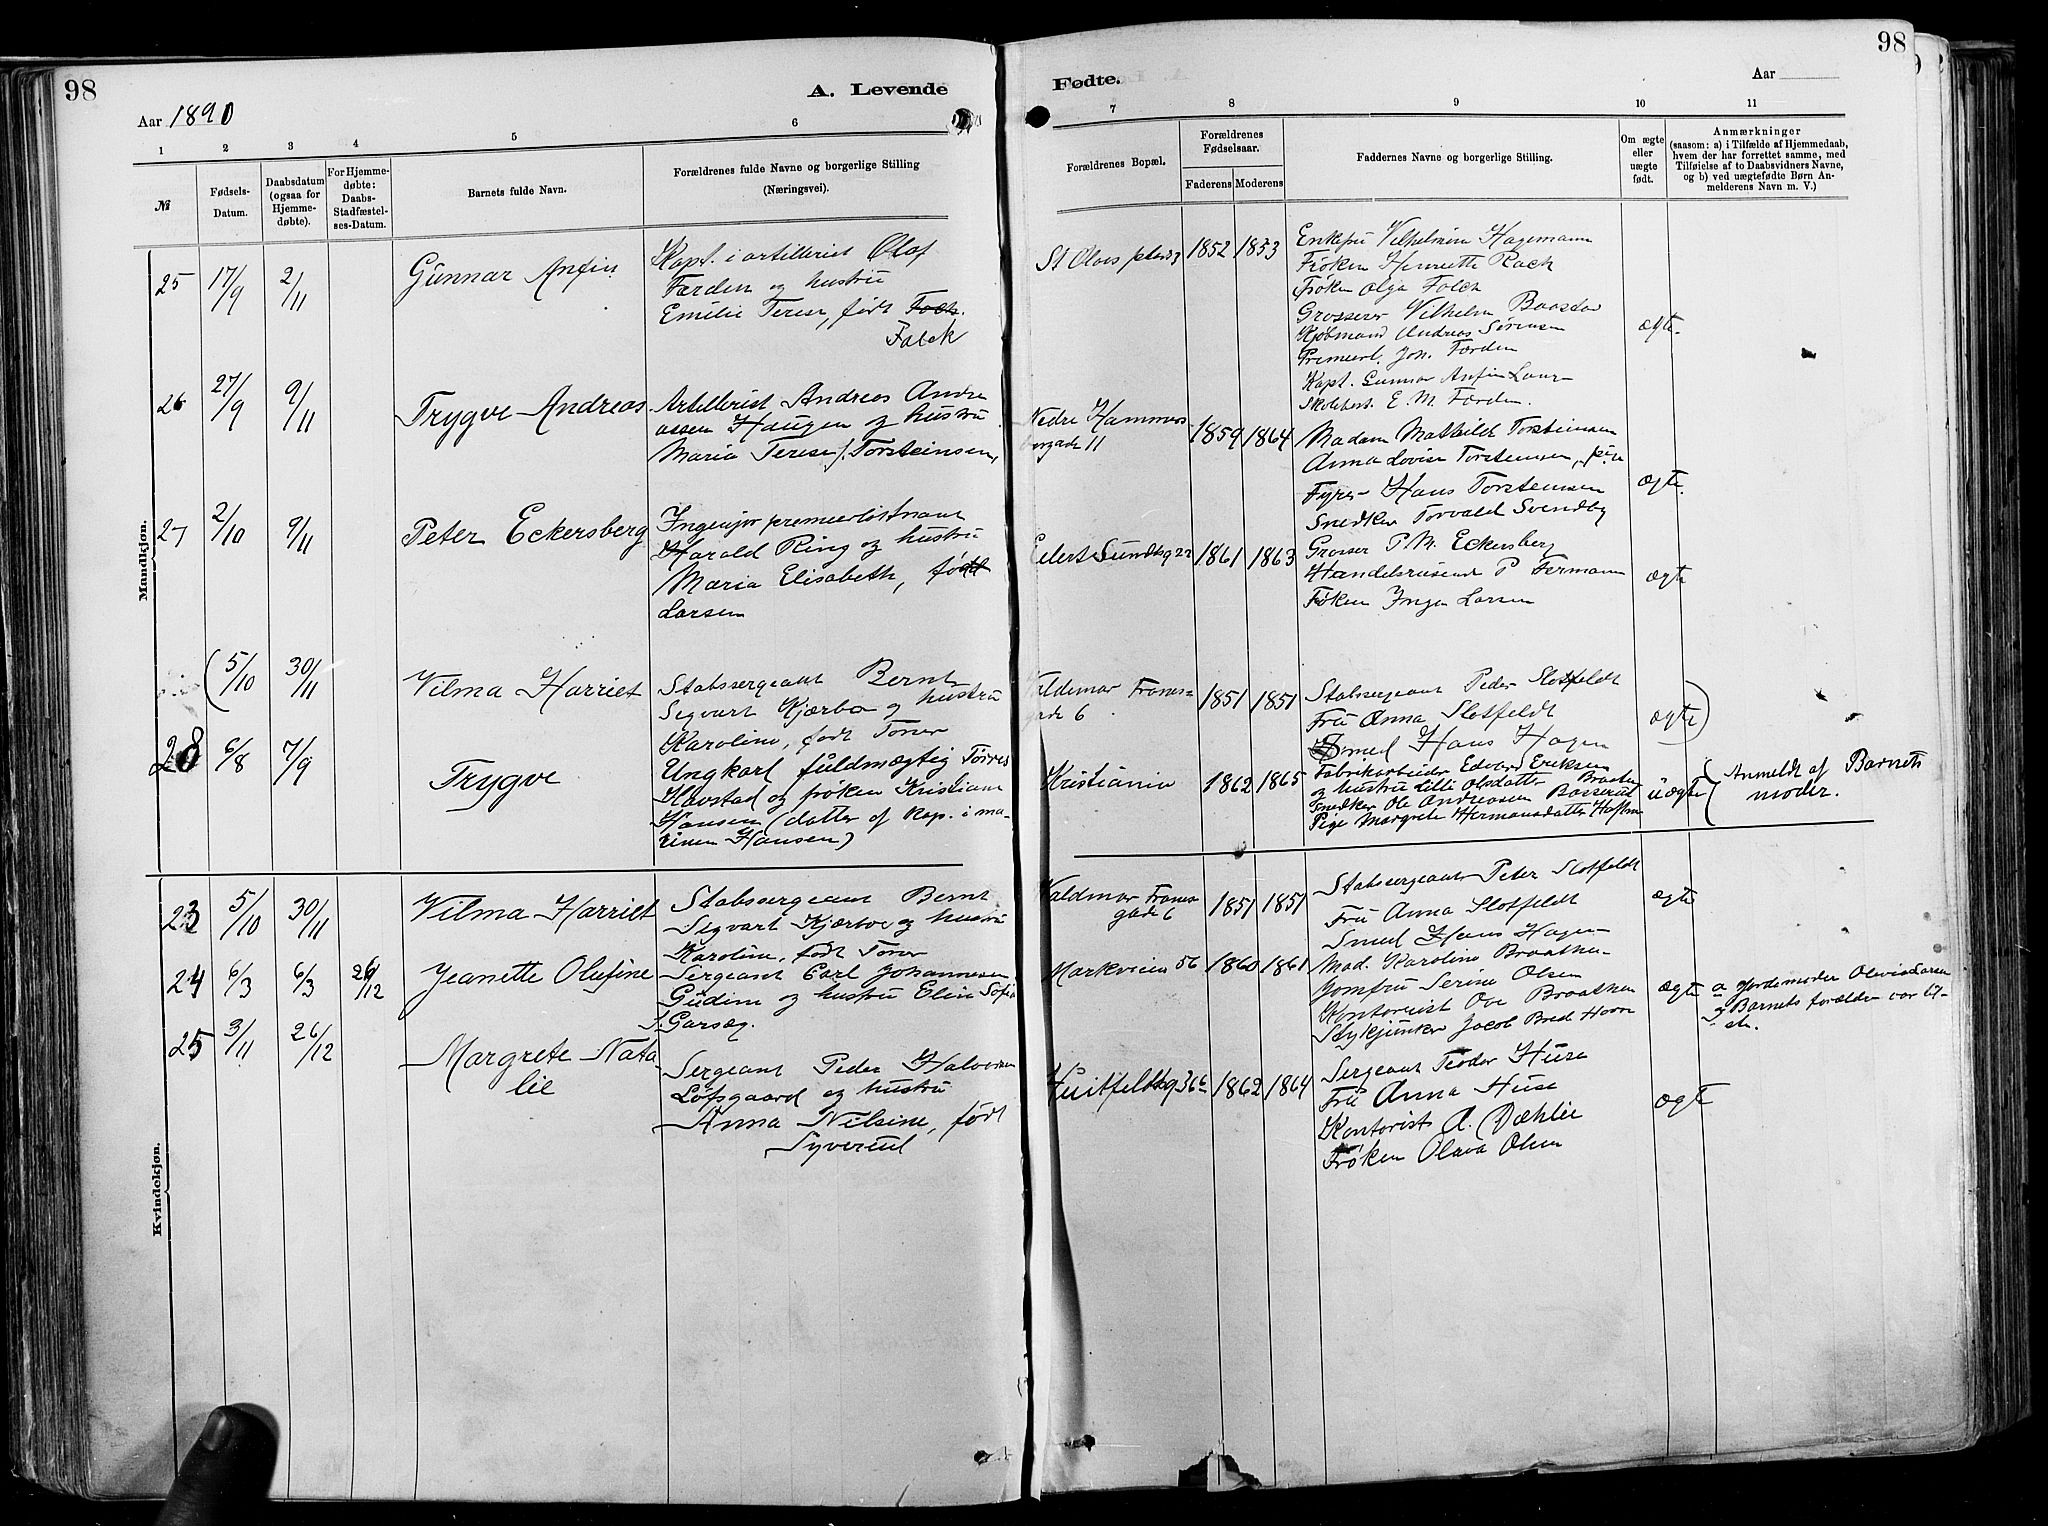 98
A. Levende
Aar 1890
1 2 3 4 5 6
№
Fødsels-
Datum.
Daabsdatum
(ogsaa for
Hjemme-
døbte).
For Hjemme-
døbte:
Daabs-
Stadfæstel-
ses-Datum.
Barnets fulde Navn.
Forældrenes fulde Navne og borgerlige Stilling
(Næringsvei).
Mandkjøn.
25 17/9 2/11 Gunnar Anfin
Kapt. i artilleriet Olaf
Færden og hustru
Emilie Terese, født Falch.
Falck
26 27/9 9/11 Trygve Andreas
Artillerist Andreas Andre
assen Haugen og hustru
Maria Terese f. Torsteinsen,
27 2/10 9/11 Peter Eckersberg
Ingeniør premierløitnant
Harald Ring og hustru
Maria Elisabeth, født
Larsen
(5/10 30/11 Vilma Harriet
Stabssergeant Bernt
Segvart Kjærbo og hustru
Karoline, født Toner
28 6/8 7/9 Trygve
Ungkarl fuldmægtig Torres
Havstad og frøken Kristiane
Hansen (datter af kap. i ma-
rinen Hansen)
Kvindekjøn.
23 5/10 30/11 Vilma Harriet
Stabssergeant Bernt
Segvart Kjærbo og hustru
Karoline, født Toner
24 6/3 6/3 26/12 Jeanette Olufine
Sergeant Carl Johannesen
Gudim og hustru Elin Sofie
f. Garsæg.
25 3/11 26/12 Margrete Nata
lie
Sergeant Peder Halvorsen
Løfsgaard og hustru
Anna Nilsine, født
Syverud
98
Fødte.
Aar
7 8 9 10 11
Forældrenes Bopæl.
Forældrenes
Fødselsaar.
Faderens Moderens
Faddernes Navne og borgerlig Stilling.
Om ægte
eller
uægte
født.
Anmærkninger
(saasom: a) i Tilfælde af Hjemmedaab,
hvem der har forrettet samme, med
Tilføielse af to Daabsvidners Navne,
og b) ved uægtefødte Børn An-
melderens Navn m. V.)
St Olavs plads 3 1852 1853
Enkefru Vilhelmine Hagemann
Frøken Henriette Rack
Frøken Olga Falck
Grosserer Vilhelm Baastad
Kjøbmand Andreas Sørensen
Premierl. Joh. Færden
Kapt. Gunnar Anfin Laur-
Skolebest. E. M. Færden.
ægte.
Nedre Hammers
borgade 11 1859 1864
Madam Mathilde Torsteinsen
Anna Lovise Torstensen, pige
Fyrer Hans Torstensen
Snedker Torvald Svendby
ægte.
Eilert Sundtsg 22 1861 1863
Grosser P M. Eckersberg
Handelsreisende P Fermann
Frøken Inga Larsen
ægte
Valdemar Tranes
gade 6 1851 1851
Stabssergeant Peder Slotfeldt
Fru Anna Slotfeldt
Smed Hans Hagen
ægte)
Kristiania 1862 1865
Fabrikarbeider Edvard Eriksen
og hustru Lilli Olsdatter Braaten
Snedker Ole Andreasen Basserud
Pige Margrete Hermansdatter
uægte
(Anmeldt af Barnets
moder.
Valdmar Tranes
gade 6 1851 1851
Stabssergeant Peter Slotfeldt
Fru Anna Slotfeldt
Smed Hans Hagen
ægte
Markveien 56 1860 1861
Mad. Karoline Braathen
Jomfru Serine Olsen
Kontorist Ove Braathen
Stykjunker Jacob Bred Hovn
ægte
a Jordemoder Olovia Larsen
Barnets forældre var til-
ste.
Huitfeldtsg 36c 1862 1864
Sergeant Teodor Huse
Fru Anna Huse
Kontorist A. Dæhlie
Frøken Olava Olsen
ægte